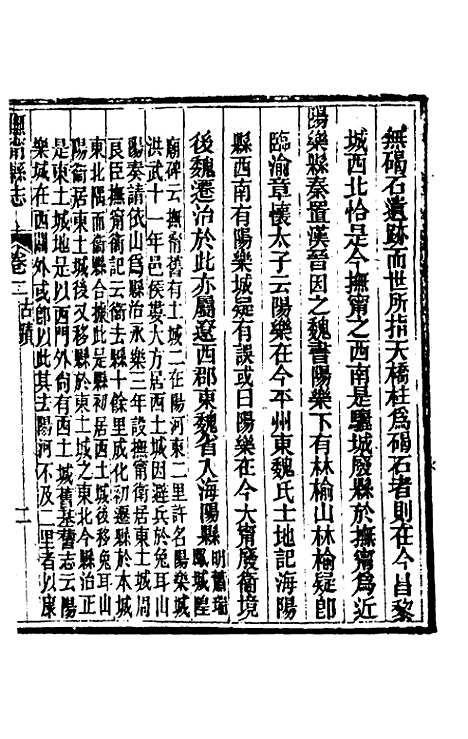 無碣石遺跡而世所指天橋柱爲碣石者則在今昌黎
城西北恰是今撫甯之西南是驪城廢縣於撫甯爲近
陽樂縣秦置漢晉因之魏書陽樂下有林榆山林榆疑卽
臨渝章懷太子云陽樂在今平州東魏氏土地記海陽
縣西南有陽樂城疑有誤或曰陽樂在今大甯廢衞境
後魏遷治於此亦屬遼西郡東魏省入海陽縣明蕭瑞鳳城隍
廟碑云撫甯舊有土城二在陽河東二里許名陽樂城
洪武十一年邑侯婁大方居西土城因避兵於兔耳山
陽奏請依山爲縣治永樂三年設撫甯衞居東土城周
良臣撫甯衞記云衞去縣十餘里成化初遷縣於本城
東北隅而衞縣合據此是縣初居西土城後移兔耳山
陽衞居東土城後又移縣於東土城之東北今縣治正
是東土城地是以西門外尙有西土城舊基舊志云陽
樂城在西關外或卽以此其去陽河不及二里者以
撫甯縣志 卷二 古蹟 二